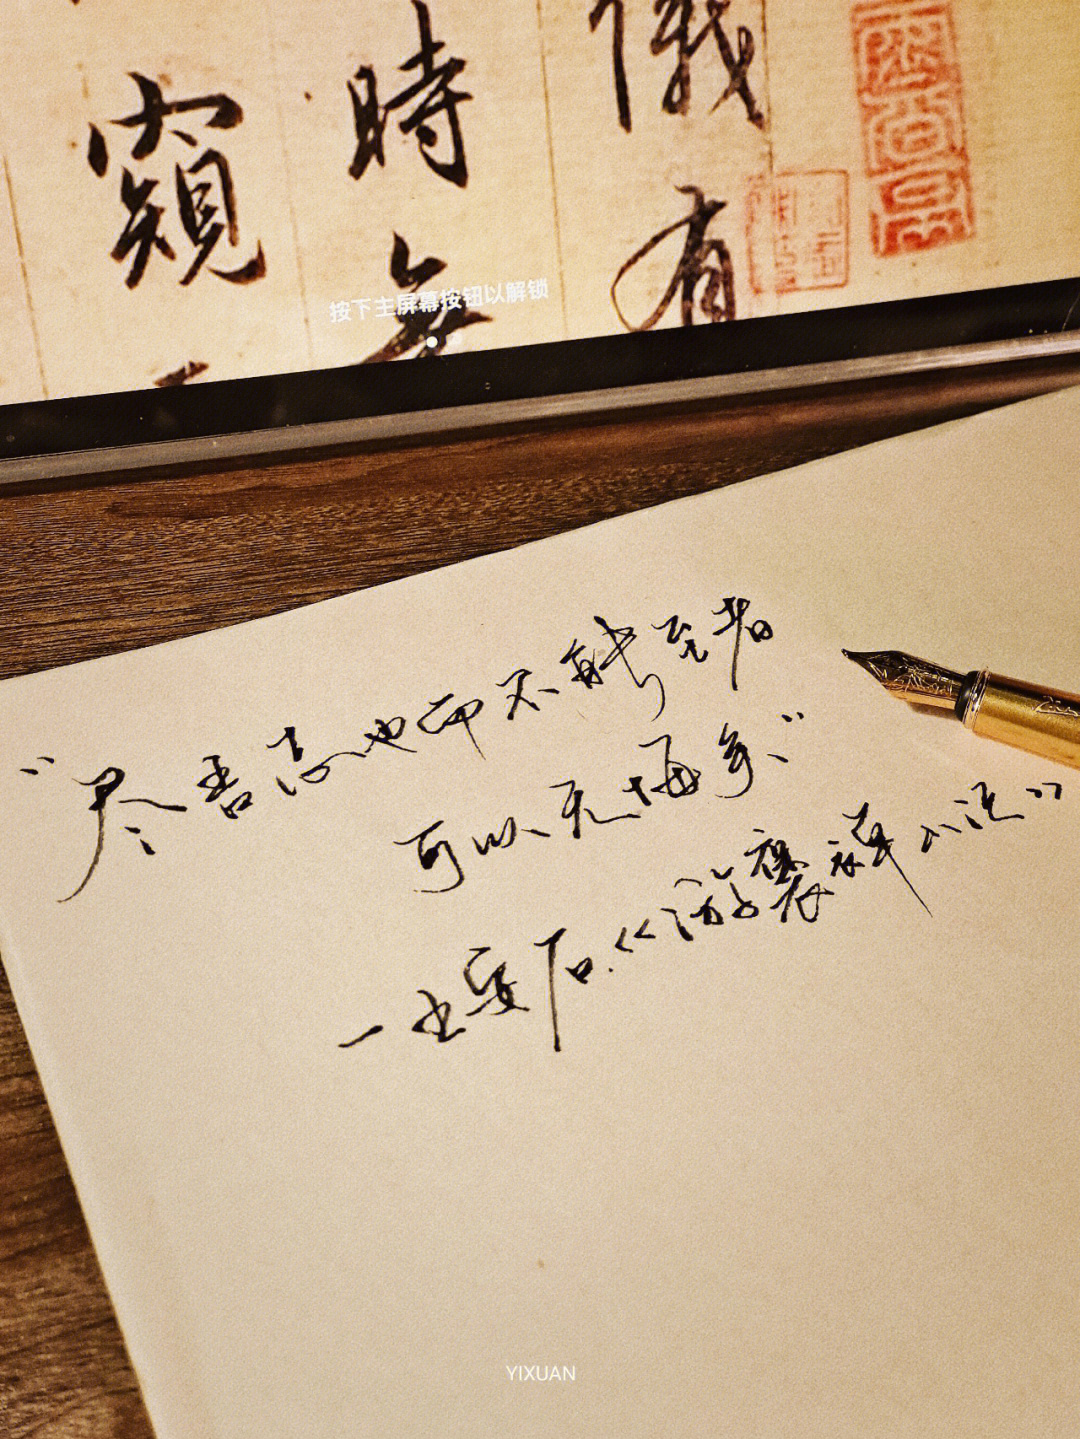 儀有
時無
窺
按下主屏幕按钮以解锁
“尽吾志也而不能至者
可以无悔矣”
—王安石《游褒禅山记》
YIXUAN